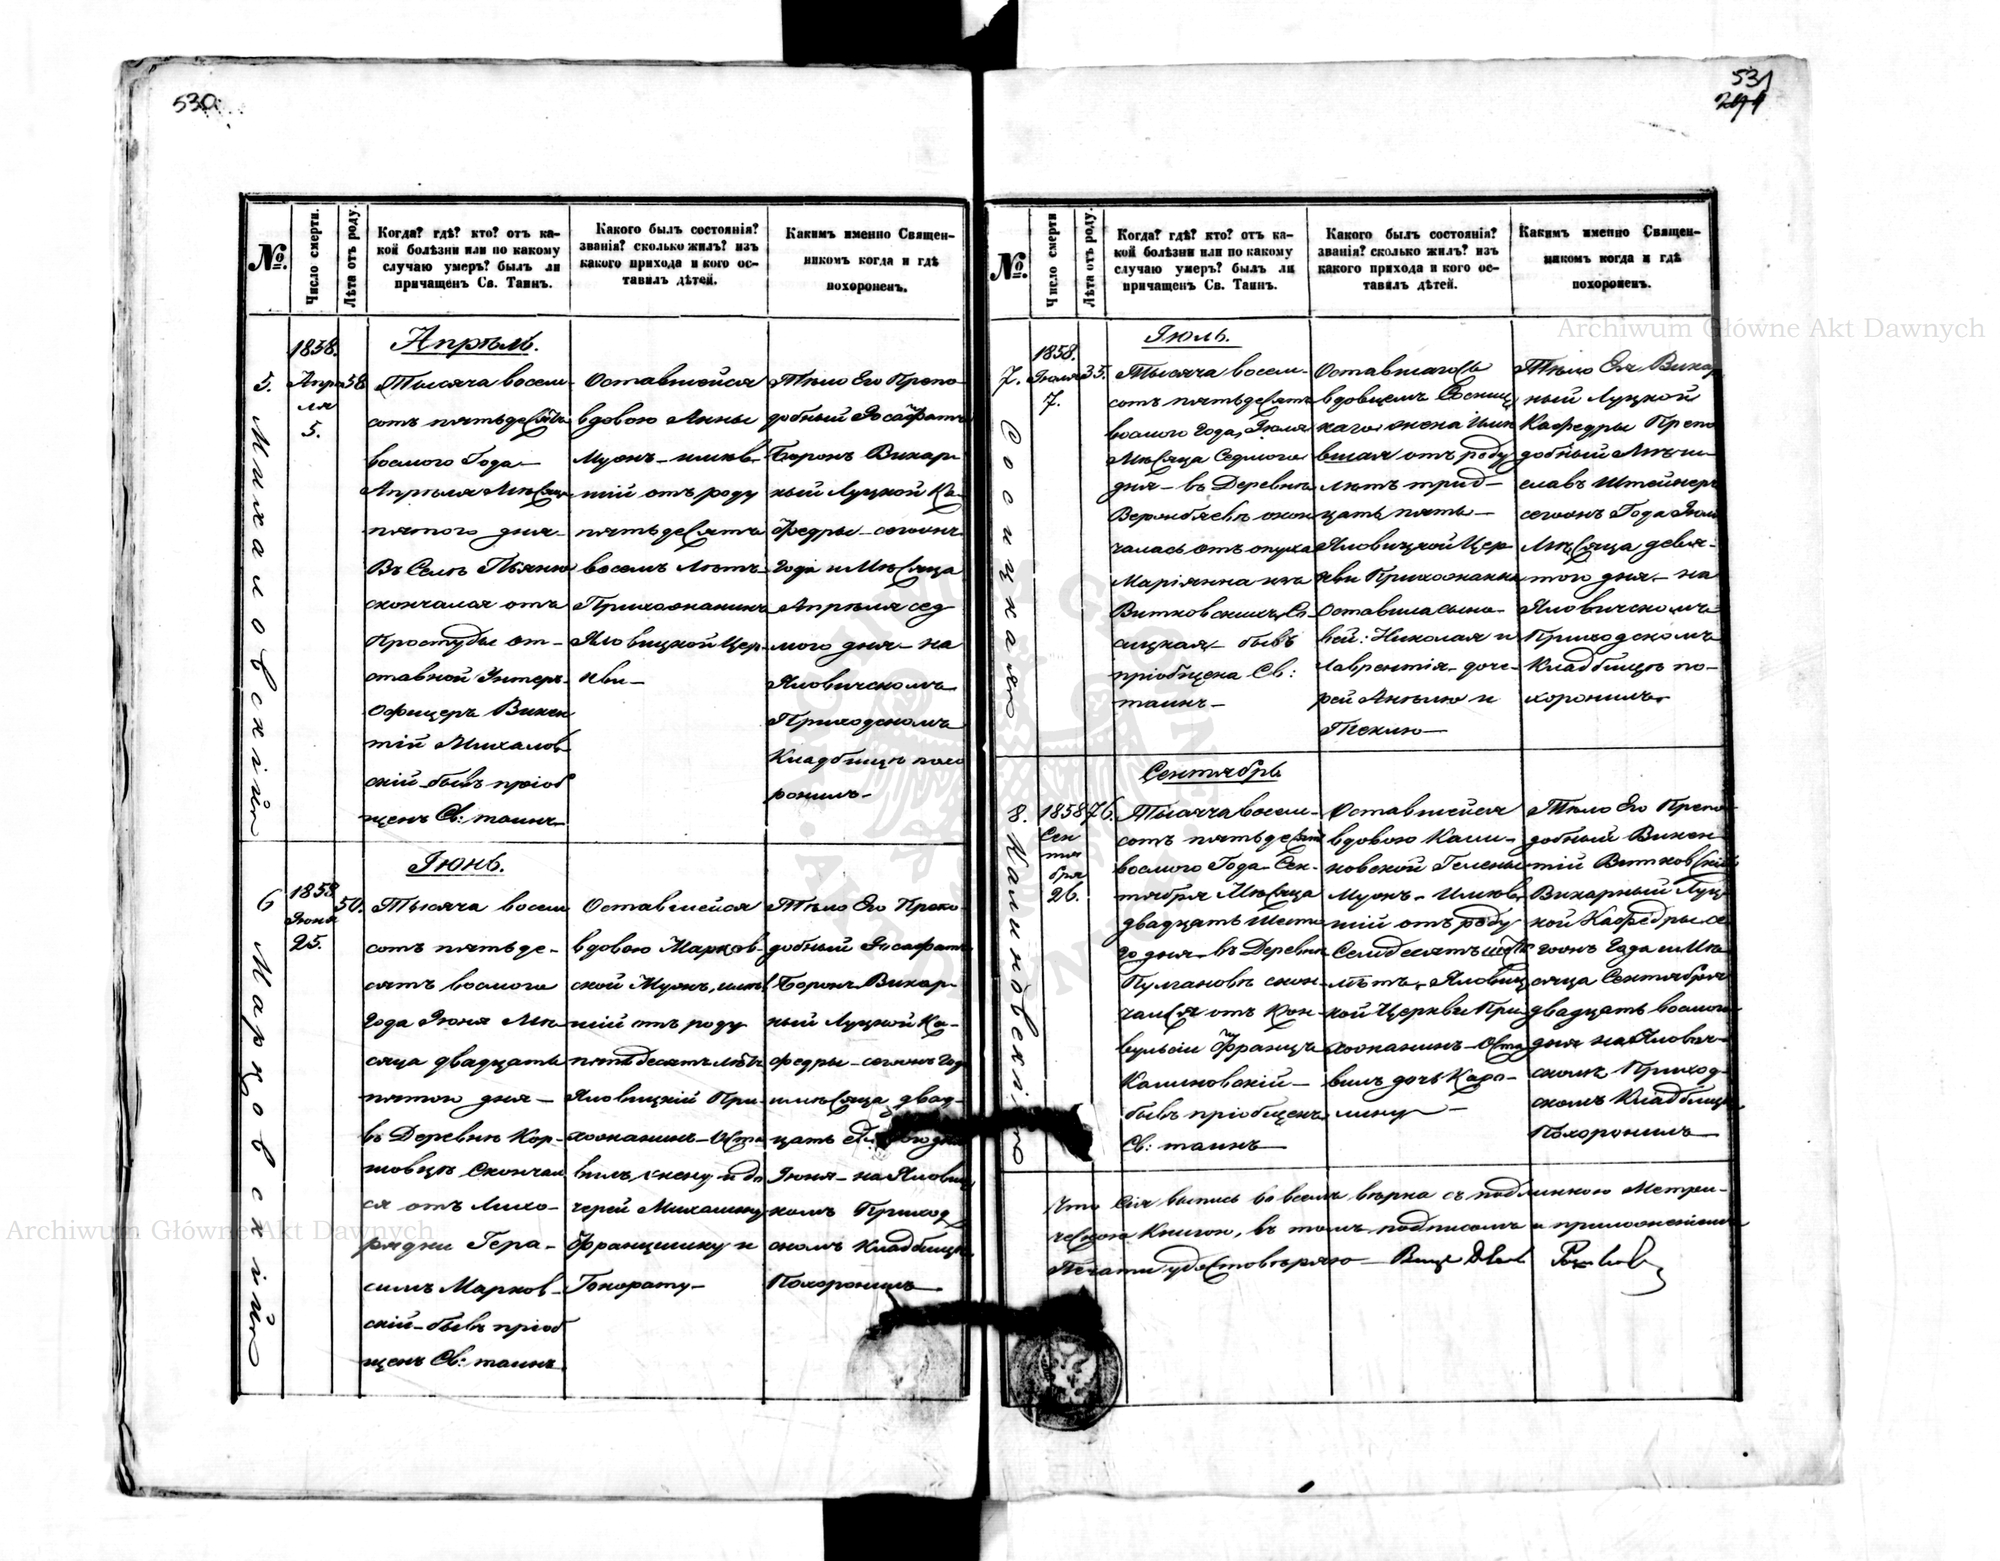 530.
№.
Число смерти.
Лѣта отъ роду.
Когда? гдѣ? кто? отъ ка-
кой болѣзни или по какому
случаю умеръ? былъ ли
причащенъ Св. Таинъ.
Какого былъ состоянія?
званія? сколько жилъ? изъ
какого прихода и кого ос-
тавилъ дѣтей.
Какимъ именно Священ-
никомъ когда и гдѣ
похороненъ.
5.
Михаловскій
1858.
Апрѣ
ля
5.
58
Апрѣль.
Тысяча восем-
сотъ пятьдесятъ
восмого Года
Апрѣля Мѣсяца
пятого дня
Въ Селѣ Пьяню
скончался отъ
Простуды от-
ставной Унтеръ-
Офицеръ Викен
тій Михалов
скій бывъ пріоб
щенъ Св: таинъ
Оставшейся
вдовою Анны
Мужъ имѣв-
шій отъ роду
пятьдесятъ
восемь лѣтъ
Прихожанинъ
Яловицкой Цер-
кви
Тѣло Его Препо-
добный Іосафатъ
Боронъ Викар-
ный Луцкой Ка-
федры сегожъ
Года и Мѣсяца
Апрѣля сед
мого дня на
Яловическомъ
Приходскомъ
Кладбищѣ похо
ронилъ
6
Марковскій
1858
Іюня
25.
50.
Іюнь.
Тысяча восем
сотъ пятьде-
сятъ восмого
Года Іюня Мѣ-
сяца двадцать
пятого дня
въ Деревнѣ Кор-
товцѣ Скончал
ся отъ лихо-
радки Гера-
симъ Марков-
скій бывъ пріоб
щенъ Св: таинъ
Оставшейся
вдовою Марков-
ской Мужъ, имѣв
шій отъ роду
пятьдесятъ лѣтъ
Яловицкій При-
хожанинъ Оста
вилъ жену и до
черей Михалину
Францишку и
Гонорату
Тѣло Его Препо-
добный Іосафатъ
Боронъ Викар-
ный Луцкой Ка-
федры сегожъ Года
и мѣсяца двад-
цать
Іюня на Яловиц
комъ Приход
скомъ Кладбищѣ
Похоронилъ
531
№.
Число смерти
Лѣта отъ роду.
Когда? гдѣ? кто? отъ ка-
кой болѣзни или по какому
случаю умеръ? былъ ли
причащенъ Св. Таинъ.
Какого былъ состоянія?
званія? сколько жилъ? изъ
какого прихода и кого ос-
тавилъ дѣтей.
Какимъ именно Священ-
никомъ когда и гдѣ
похороненъ.
7.
Сосицкая
1858.
Іюля
7.
35.
Іюль.
Тысяча восем-
сотъ пятьдесятъ
восмого Года, Іюля
Мѣсяца Седмого
дня въ Деревнѣ
скон
чалась отъ опуха
Маріянна изъ
Витковскихъ Со-
сицкая бывъ
пріобщена Св:
таинъ
Оставшагось
вдовцемъ Сосниц
каго жена имѣ
вшая отъ роду
лѣтъ трид-
цать пять
Яловицкой Цер
кви Прихожанка
Оставила сыно-
вей: Николая и
Лаврентія доче-
рей Анѣлю и
Теклю
Тѣло Ея Викар
ный Луцкой
Кафедры Препо
добный Мѣчи-
славъ Штейнеръ
сегожъ Года Іюля
Мѣсяца девя-
того дня на
Яловическомъ
Приходскомъ
Кладбищѣ по-
хоронилъ
8.
Калиновскій
1858
Сен
тя
бря
26.
76.
Сентябрь
Тысяча восем-
сотъ пятьдесятъ
восмого Года Сен-
тября Мѣсяца
двадцать Шеста
го дня въ Деревнѣ
Пулгановѣ скон-
чался отъ Кон-
вульсіи Францъ
Калиновскій
бывъ пріобщенъ
Св: таинъ
Оставшейся
вдовою Кали-
новской Гелены
Мужъ Имѣв-
шій отъ роду
Семдесятъ шесть
лѣтъ, Яловиц
кой Церкви При-
хожанинъ Оста
вилъ дочь Каро-
лину
Тѣло Его Препо-
добный Викен-
тій Витковскій
Викарный Луц-
кой Кафедры се-
гожъ Года и Мѣ-
сяца Сентября
двадцать восмого
дня на Яловиче-
скомъ Приход-
скомъ Кладбищѣ
Похоронилъ
Что Сія выпись во всемъ вѣрна съ подлинною Метри-
ческою Книгою, въ томъ подписомъ и приложеніемъ
Печати удостовѣряю
Archiwum Główne Akt Dawnych
Archiwum Główne Akt Dawnych